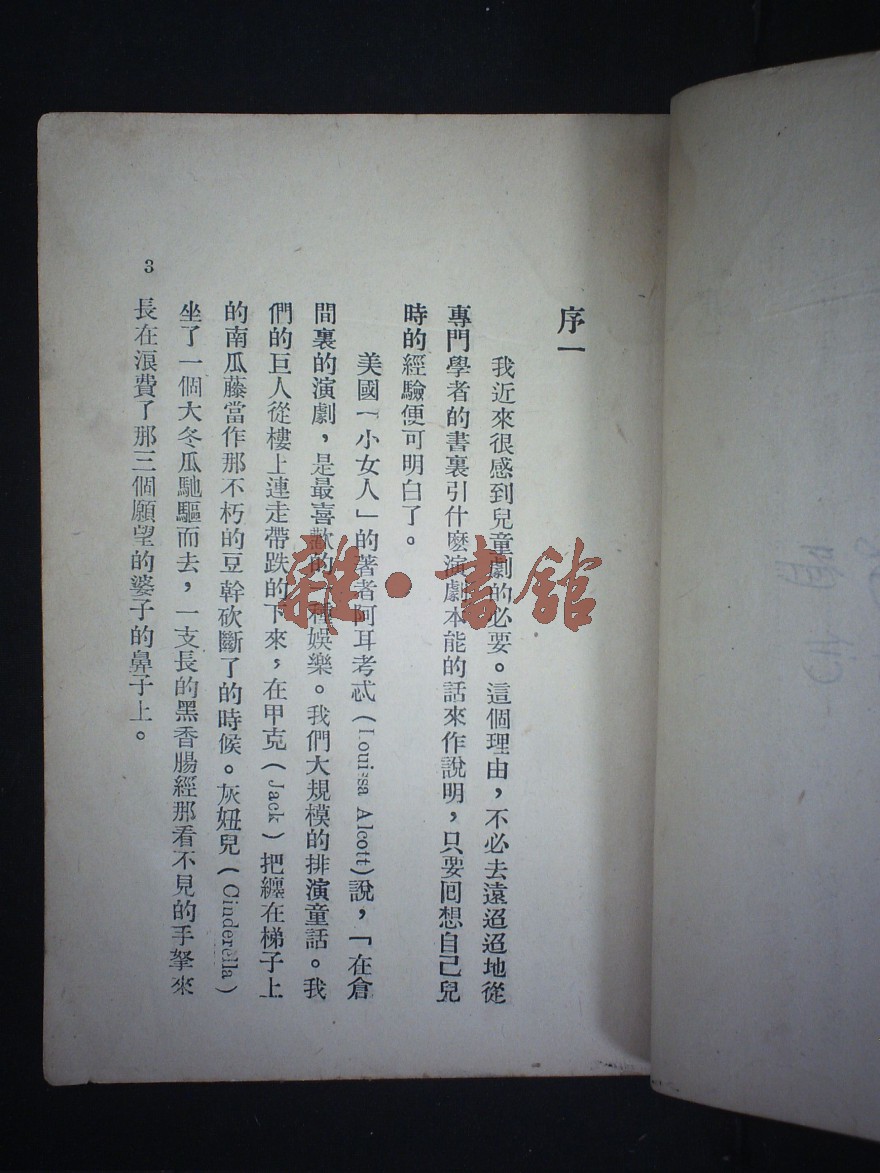 序一
我近來很感到兒童劇的必要。這個理由，不必去遠迢迢地從
專門學者的書裏引什麼演劇本能的話來作說明，只要回想自己兒
時的經驗便可明白了。
美國「小女人」的著者阿耳考忒(Louissa Alcott)說，「在倉
間裏的演劇，是最喜歡的一種娛樂。我們大規模的排演童話。我
們的巨人從樓上連走帶跌的下來，在甲克(Jack)把纏在梯子上
的南瓜藤當作那不朽的豆幹砍斷了的時候。灰妞兒(Cinderella)
坐了一個大冬瓜馳驅而去，一支長的黑香腸經那看不見的手拏來
長在浪費了那三個願望的婆子的鼻子上。
3
雜·書館